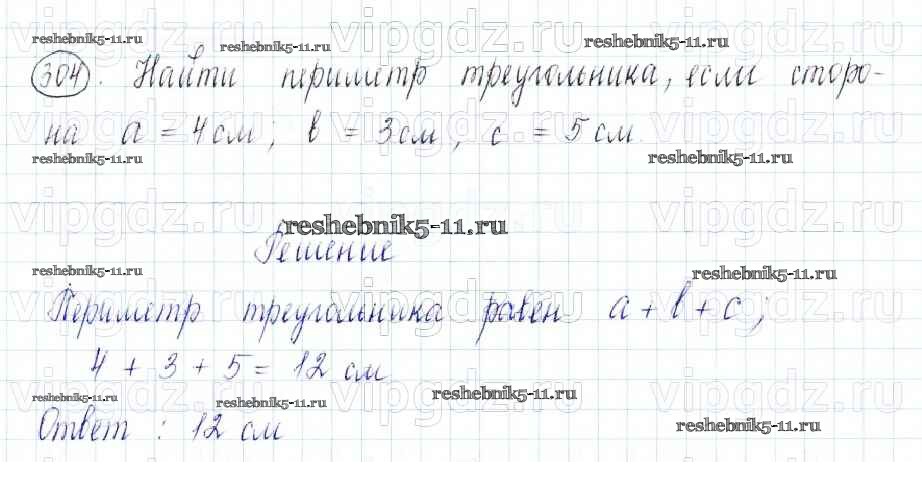 reshebnik5-11.ru reshebnik5-11.ru reshebnik5-11.ru
304. Найти периметр треугольника, если сторо-
на a = 4 см; b = 3 см, c = 5 см
reshebnik5-11.ru reshebnik5-11.ru
vipgdz.ru vipgdz.ru vipgdz.ru
reshebnik5-11.ru
Решение
reshebnik5-11.ru reshebnik5-11.ru
Периметр треугольника равен a + b + c;
4 + 3 + 5 = 12 см
reshebnik5-11.ru reshebnik5-11.ru reshebnik5-11.ru
vipgdz.ru vipgdz.ru vipgdz.ru
Ответ : 12 см
reshebnik5-11.ru